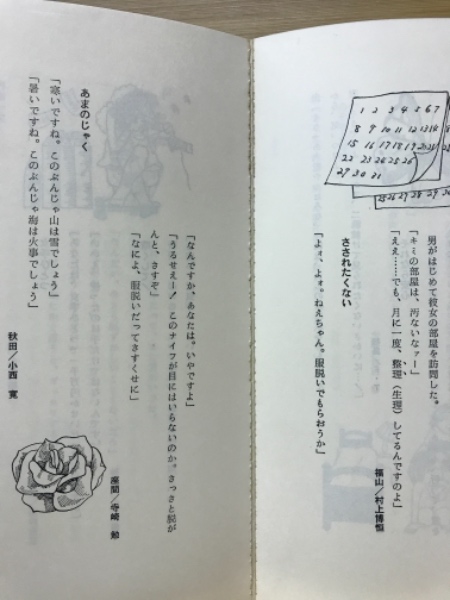 1 2 3 4 5 6 7
8 9 10 11 12 13 14
15 16 17 18 19 20 21
22 23 24 25 26
29 30 31
25 26 27 28 29 30
男がはじめて彼女の部屋を訪問した。
「キミの部屋は、汚ないなァー」
「ええ……でも、月に一度、整理（生理）してるんですのよ」
福山／村上博恒
さされたくない
「よォ、よォ。ねえちゃん。服脱いでもらおうか」
「なんですか、あなたは。いやですよ」
「うるせえー！ このナイフが目にはいらないのか。さっさと脱が
んと、さすぞ」
「なによ、服脱いだってさすくせに」
座間／寺崎 勉
あまのじゃく
「寒いですね。このぶんじゃ山は雪でしょう」
「暑いですね。このぶんじゃ海は火事でしょう」
秋田／小西 寛